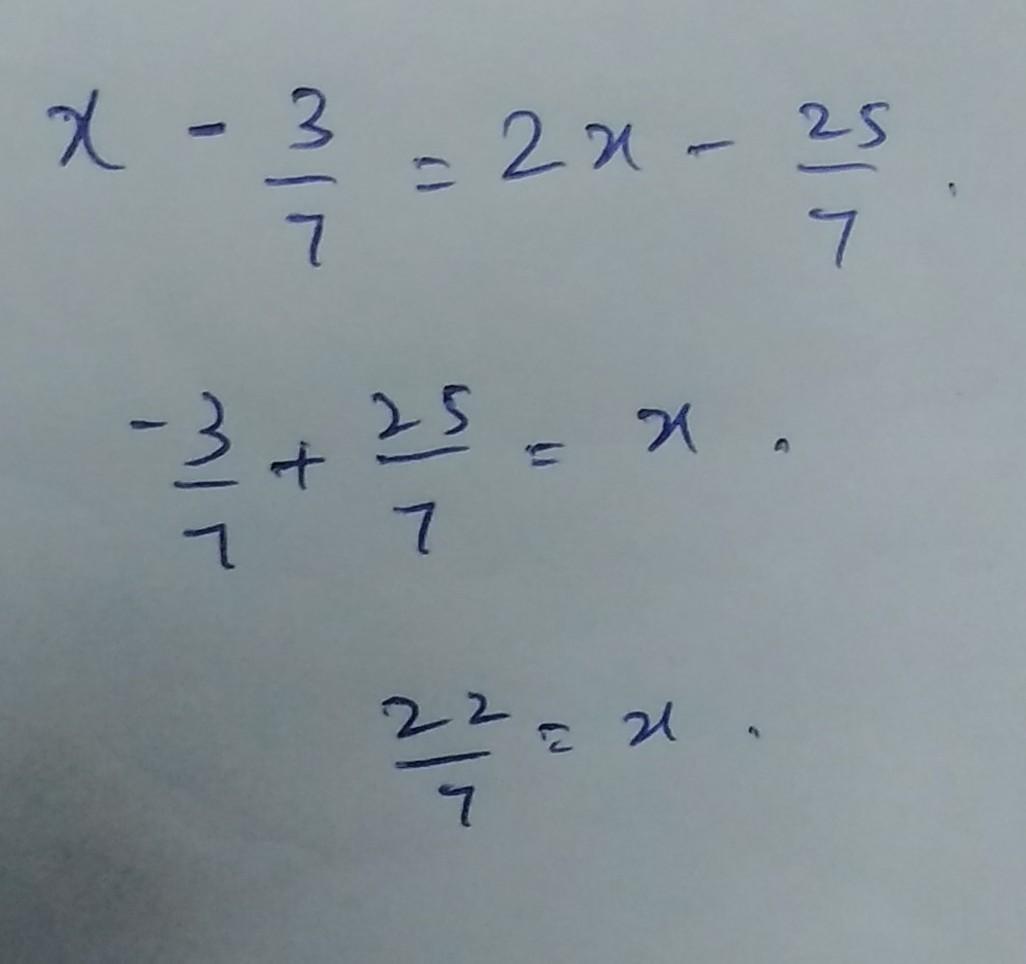 x - 3/7 = 2x - 25/7.
-3/7 + 25/7 = x.
22/7 = x.